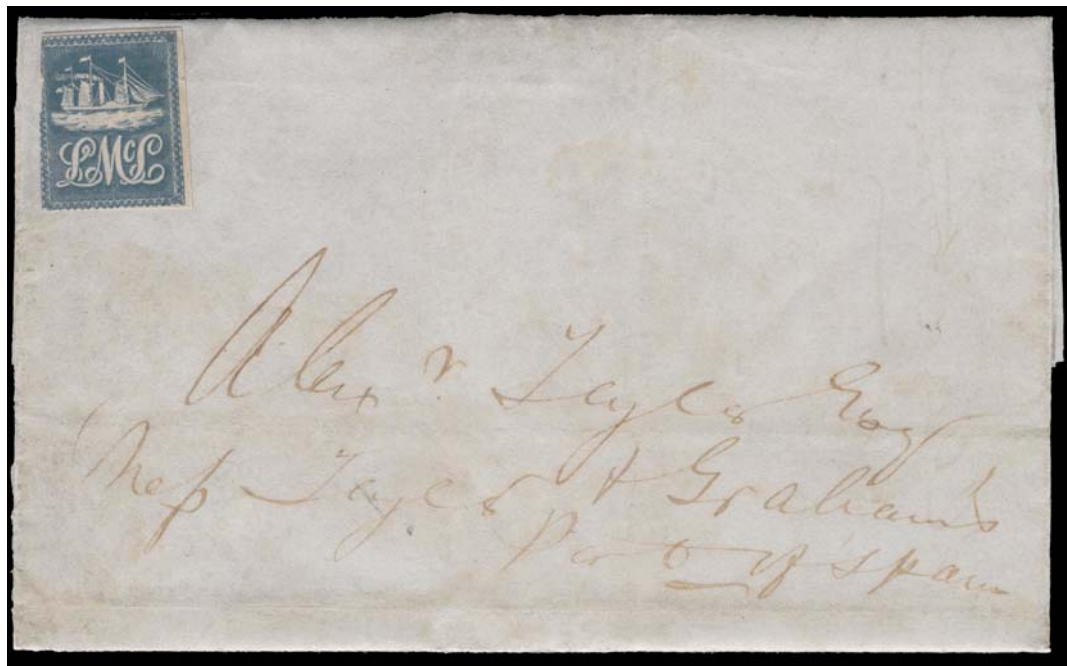 LMcL
Alexr. Taylor Esqr
Mess Taylor & Grahams
Port of Spain